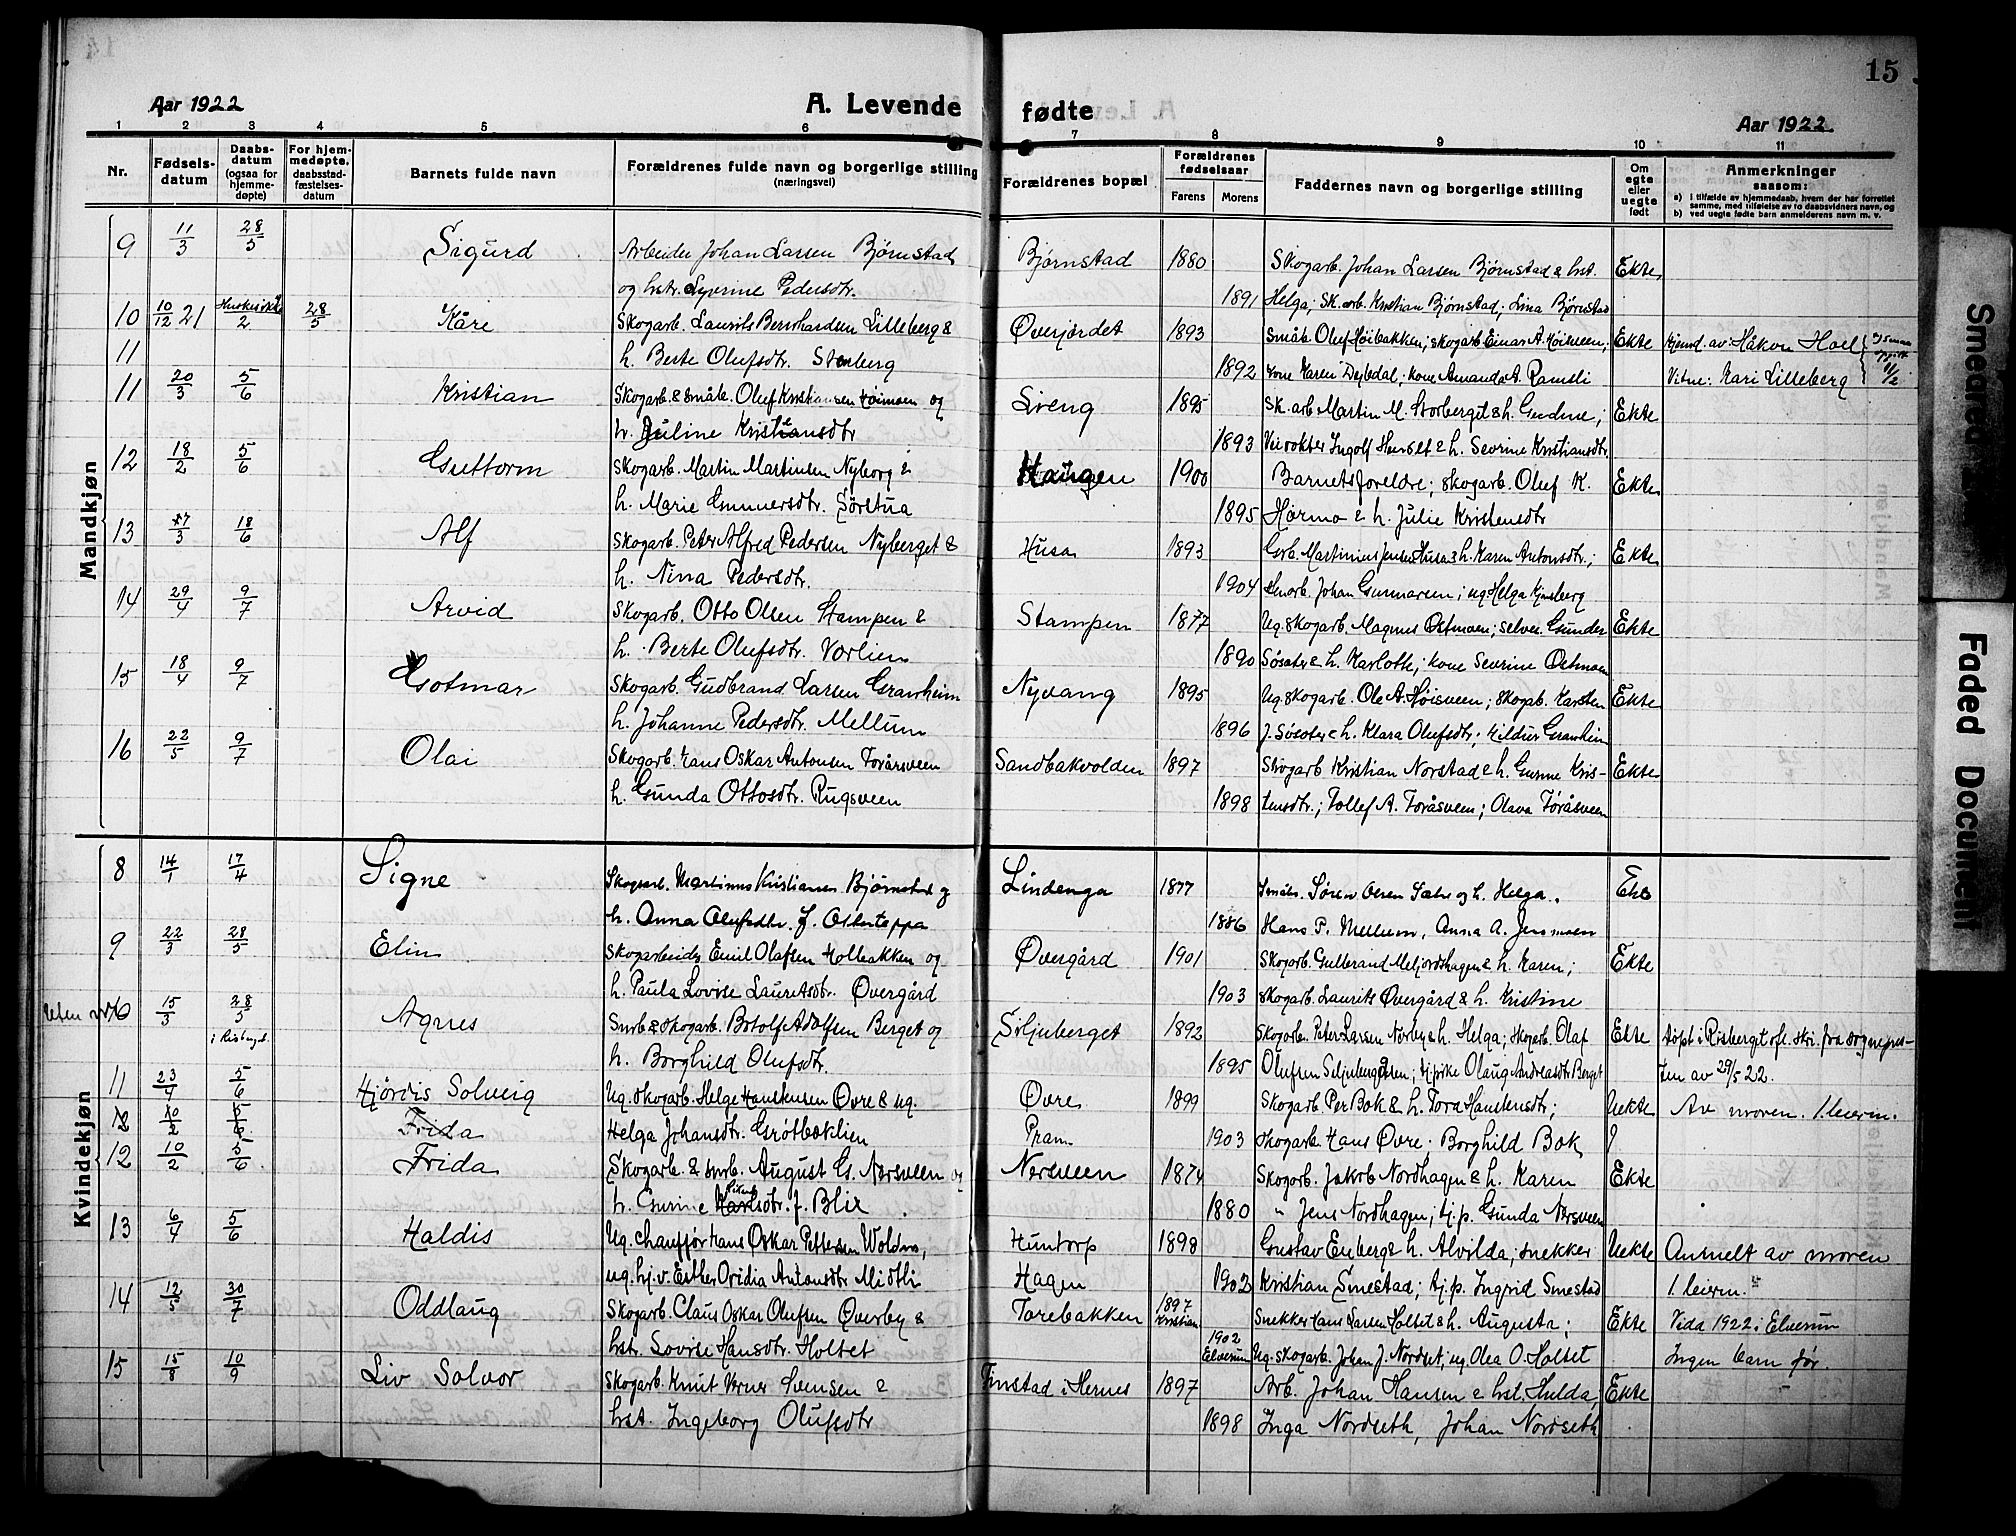 15
Aar 1922
A. Levende fødte
Aar 1922
1 2 3 4 5 6 7 8 9 10 11
Nr.
Fødsels-datum
Daabs-datum (ogsaa for hjemme-døpte)
For hjem-medøpte, daabsstad-fæstelses-datum
Barnets fulde navn
Forældrenes fulde navn og borgerlige stilling (næringsvei)
Forældrenes bopæl
Forældrenes fødselsaar
Farens Morens
Faddernes navn og borgerlige stilling
Om egte eller uegte født
Anmerkninger saasom:
a) i tilfælde av hjemmedaab, hvem der har forrettet samme, med tilføielse av to daabsvidners navn, og
b) ved uegte fødte barn anmelderens navn m. v.
Mandkjøn
9 11/3 28/5 Sigurd Arbeider Johan Larsen Bjørnstad Bjørnstad 1880 Skogarb. Johan Larsen Bjørnstad & hst. Ekte
og hstr. Syverine Pedersdtr. 1891 Helga; Sk.arb. Kristian Bjørnstad; Lina Bjørnstad
10 10/12 21 2 28/5 Kåre Skogarb. Laurits Bernhardsen Lilleberg & Øverjordet 1893 Småb. Oluf Høibakken; skogarb Einar A. Høisveen; Ekte Hjemd. av: Håkon Hoel
11 h. Berte Olufsdtr. Stenberg 1892 kone Karen Dejbdal; kone Amanda A. Ramsli Vitne: Kari Lilleberg 11/2
11 20/3 5/6 Kristian Skogarb. & småb. Oluf Kristiansen Høimoen og Sveng 1895 Sk. arb Martin M. Storberget & h. Gudine; Ekte
h. Juline Kristiansdtr 1893 Veivokter Ingolf h. Sevrine Kristiansdtr.
12 18/2 5/6 Guttorm Skogarb. Martin Martinsen Nyborg & Haugen 1900 Barnets foreldre; skogarb. Oluf K. Ekte
h. Marie Gunnersdtr. Sørstua 1895 Harmo & h. Julie Kristensdtr
13 27/3 18/6 Alf Skogarb. Peter Alfred Pedersen Nyberget & Husa 1893 Grb. Martinius Jensen Husa & h. Karen Antonsdtr.; Ekte
h. Nina Pedersdtr. 1904 Johan Gunnaren; ug Helga Kjensberg
14 29/4 9/7 Arvid Skogarb. Otto Olsen Stampen & Stampen 1877 Ug. skogarb. Magnus Østmoen; selvei. Gunder Ekte
h. Berte Olufsdtr. Vorlien 1890 Søsæter & h. Karlotte; kone Sevrine Østmoen
15 18/4 9/7 Gotmar Skogarb. Gudbrand Larsen Granheim Nyvang 1895 Ug. skogarb. Ole A. Høisveen; skogab. Karsten Ekte
h. Johanne Pedersdtr. Mellum 1896 J. Søsæter & h. Klara Olufsdtr; Hildur Granheim
16 22/5 9/7 Olai Skogarb. Hans Oskar Antonsen Toråsveen Sandbakvolden 1897 Skogarb Kristian Norstad & h. Gunne Kris- Ekte
h. Gunda Ottosdtr. Rugsveen 1898 tensdtr.; Tollef A. Toråsveen; Olava Toråsveen
Kvindekjøn
8 14/1 17/4 Signe Skogsarb. Martinus Kristiansen Bjørnstad og Lindenga 1877 Småbr. Søren Olsen Sæter og h. Helga. Ekte
h. Anna Olufsdtr. f. Oshesteppa 1886 Hans P. Mellum, Anna A. Jensmoen
9 22/3 28/5 Elin Skogarbeider Emil Olafsen Holbakken og Øvergård 1901 Skogarb. Gulbrand Meljordshagen & h. Karen; Ekte
h. Paula Lovise Lauritsdtr. Øvergård 1903 Skogarb. Laurits Øvergård & h. Kristine
10 15/3 28/5 Agnes Smb & skogarb. Botolf Adolfsen Berget og Siljuberget 1892 Skogarb. Peter Larsen Nørby & h. Helga; skogarb. Olaf Ekte døpt i Risberget ifl. skr. fra sogneprest-
i Risberget. h. Borghild Olufsdtr. 1895 Olufsen Seljuberg; hj.pike Olaug Andreasdtr Berget en av 29/5 22.
11 23/4 5/6 Hjørdis Solveig Ug. skogarb. Helge Hanstensen Øvre & ug. Øvre 1899 Skogarb Per Bok & h. Tora Hanstensdtr; Uekte Av moren. 1. leierm.
12 10/2 5/6 Frida Helga Johansdtr. Grøtbæklien Pram 1903 Skogarb. Hans Øvre; Borghild Bok
12 10/2 5/6 Frida Skogarb. & smb. August G. Nersveen og Nersveen 1874 Skogarb. Jakob Nordhagen & h. Karen Ekte
h. Gunne Karlsdtr. f. Blix 1880 " Jens Nordhagen; hj.p. Gunda Nersveen
13 6/4 5/6 Haldis Ug. chauffør Hans Oskar Pettersen Wolden, Huntorp 1898 Gustav Enberg & h. Alvilda; snekker Uekte Anmelt av moren
ug. hj. v. Esther Ovidia Antonsdtr Midtli Hagen 1902 Kristian Smestad; hj.p. Ingrid Smestad 1. leierm.
14 12/5 30/7 Oddlaug Skogarb. Claus Oskar Olufsen Øverby & Torebakken 1897 Kristian Snekker Hans Larsen Holtet & h. Augusta; Ekte Vida 1922 i Elverum
hstr. Lovise Hansdtr. Holtet 1902 Elverum Ug. skogarb. Johan J. Nordset; ug. Olea O. Holtet Ingen barn før.
15 15/8 10/9 Liv Solvor Skogarb. Knut Verner Svensen & Finstad i Hernes 1897 Arb. Johan Hansen & hst. Hulda; Ekte
hst. Ingeborg Olufsdtr 1898 Inga Nordseth, Johan Nordseth
Smeared
Faded Document